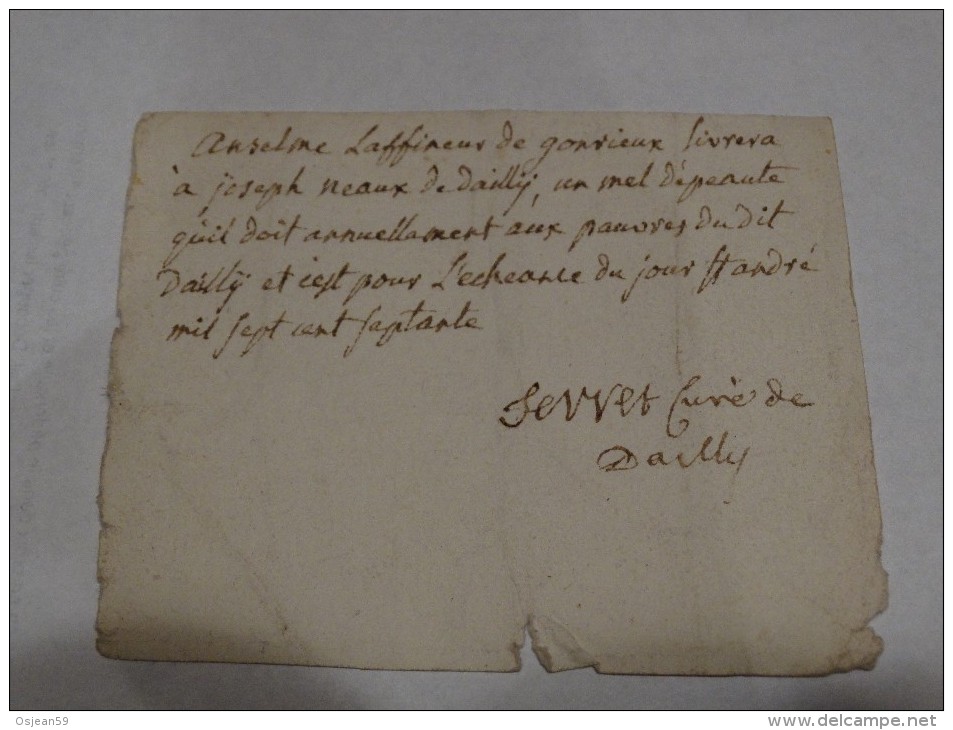 Anselme Laffineur de gonrieux livrera
à joseph neaux de dailly, un mel d'épeaute
quil doit annuellament aux pauvres du dit
Dailly et c'est pour L'echeance du jour st andré
mil sept cent septante
Servet Curé de
Dailly
Osjean59
www.delcampe.net